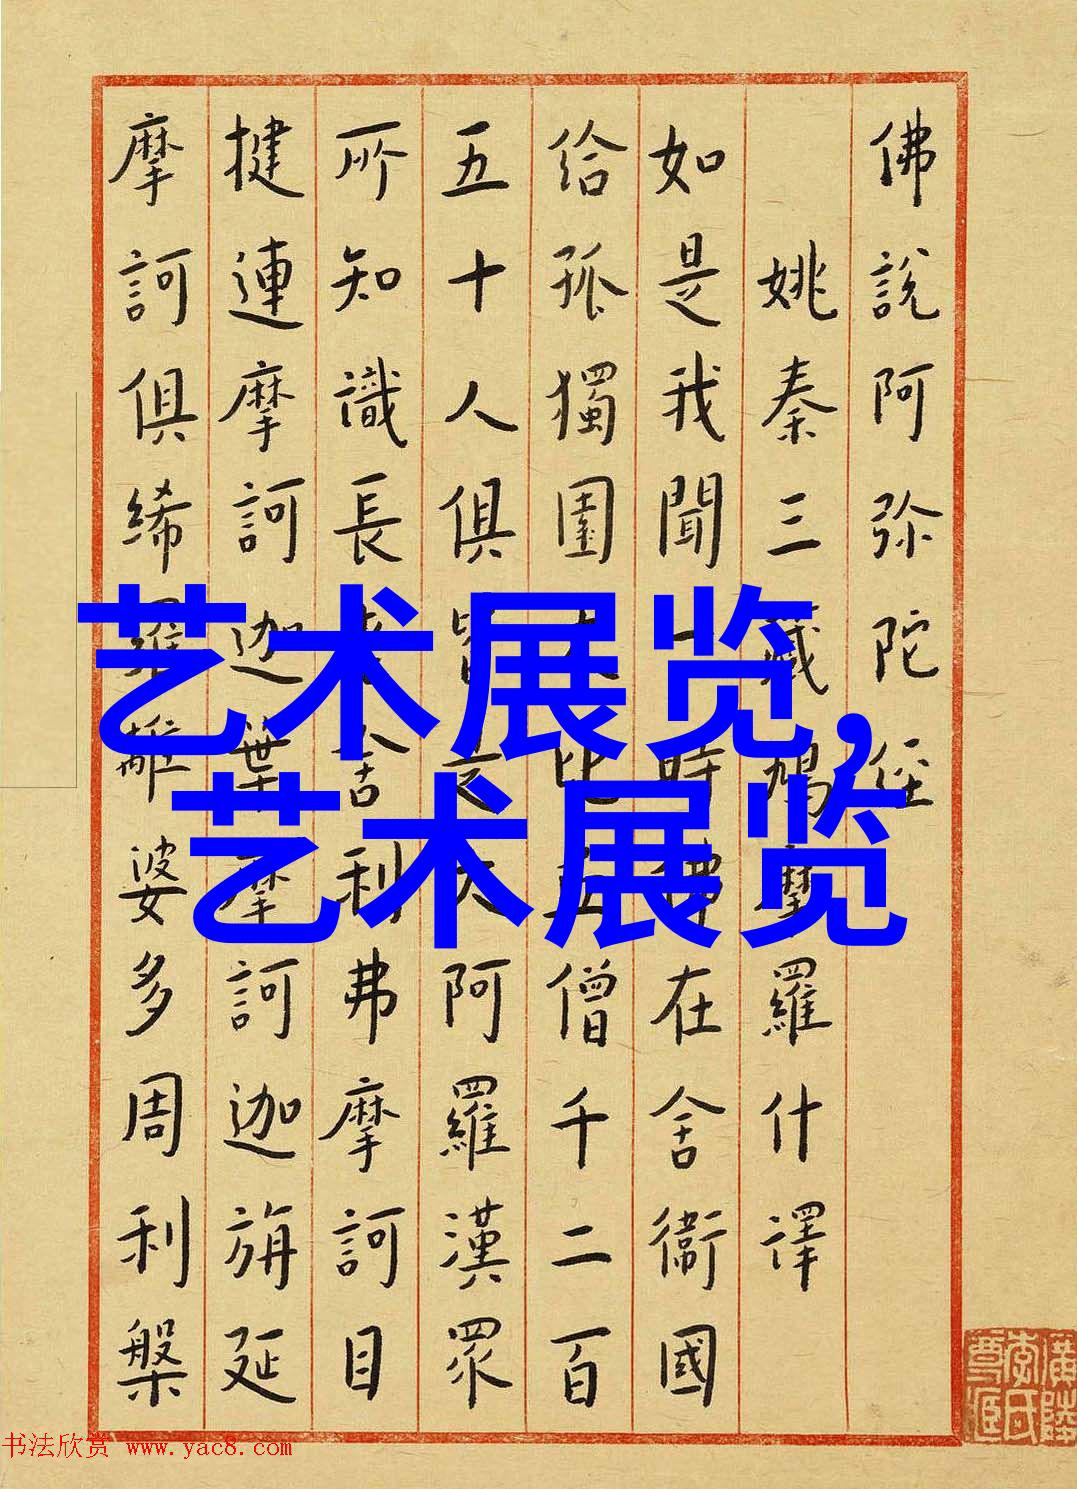 佛說阿弥陀经
姚秦三藏鳩摩羅什譯
如是我聞一時佛在舍衛國
给孤獨園大比丘僧千二百
五十人俱皆是大阿羅漢眾
所知識長老舍利弗摩訶目
揵連摩訶迦葉摩訶迦旃延
摩訶俱絺羅離婆多周利槃
艺术展览,
艺术展览
廣陵
李氏
书法欣赏 www.yac8.com